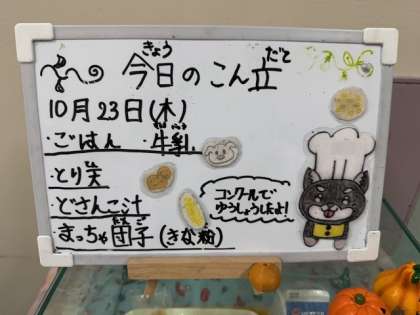 きょう だて
今日のこん立
10月23日(木)
・ごはん ・牛乳
・とり天
・どさんこ汁
・まっちゃ団子(きな粉)
コンクールで
ゆうしょうしたよ!